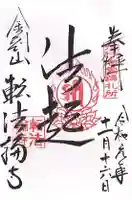 奉拝
令和元年
十一月十六日
法起
金剛山
転法輪寺